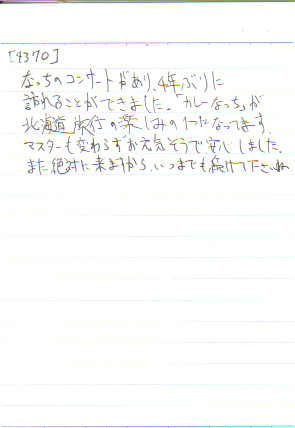 [4370]
なっちのコンサートがあり、4年ぶりに
訪れることができました。「カレーなっち」が
北海道旅行の楽しみの1つになってます。
マスターも変わらずお元気そうで安心しました。
また絶対に来ますから、いつまでも続けて下さいね